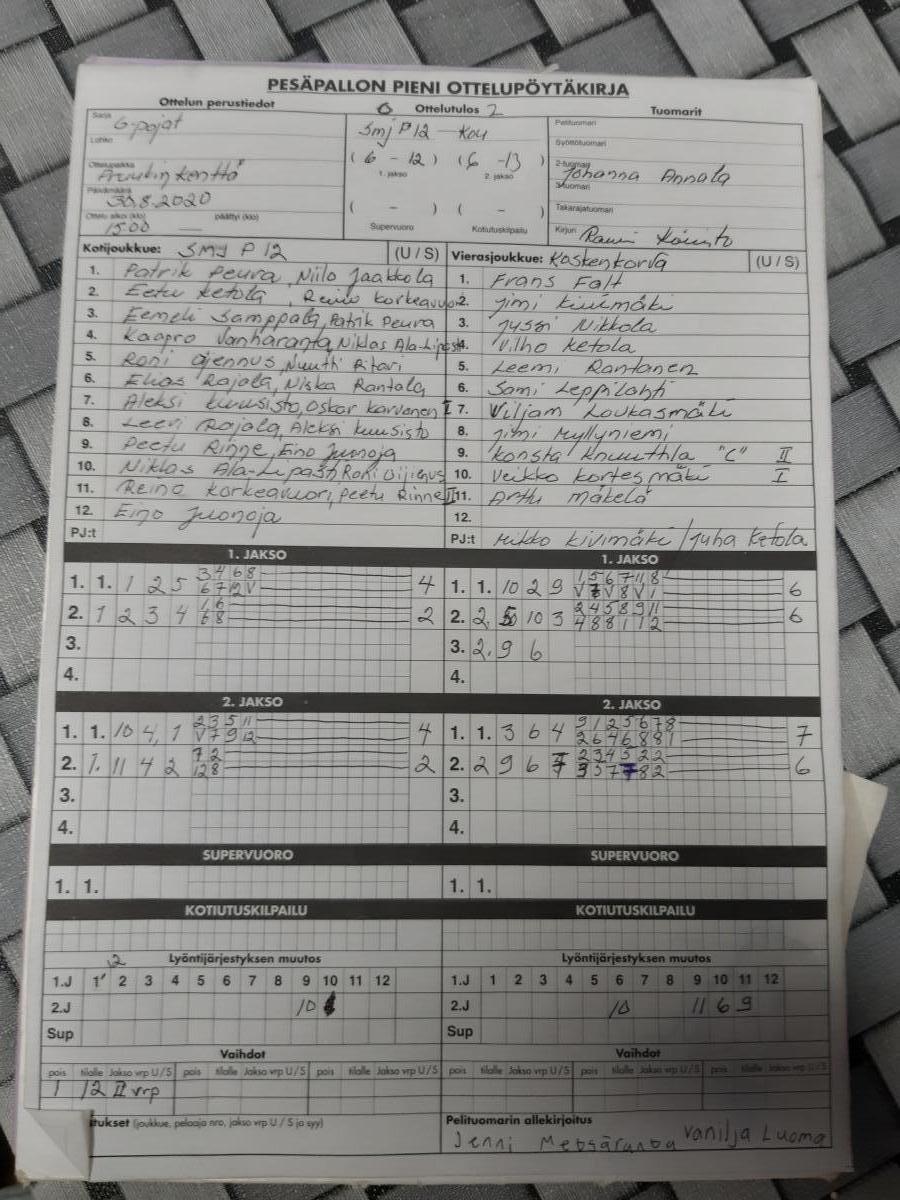 PESÄPALLON PIENI OTTELUPÖYTÄKIRJA
Ottelun perustiedot
Sarja G-pojat
Lohko
Ottelupaikka
Päivämäärä 30.8.2020
Ottelu alkoi (klo) 15.00 päättyi (klo) —
0 Ottelutulos 2
SMJ P12 — KoU
(6 - 12) (6 - 13)
1. jakso 2. jakso
( - ) ( - )
Supervuoro Kotiutuskilpailu
Tuomarit
Pelituomari
Syöttötuomari
2-tuomari Johanna Annala
3-tuomari
Takarajatuomari
Kirjuri Rauni Koivisto
Kotijoukkue: SMJ P 12 (U / S)
1. Patrik Peura, Milo Jaakkola
2. Eetu Ketola, Reino Korkeavuori
3. Eemeli Samppala, Patrik Peura
4. Kaapro Vanharanta, Niklas Ala-Lipasti
5. Roni Ojennus, Nuutti Ritari
6. Elias Rajala, Niska Rantala
7. Aleksi Kuusisto, Oskar Karvonen I
8. Leevi Rajala, Aleksi Kuusisto
9. Peetu Rinne, Eino Juonoja
10. Niklas Ala-Lipasti Roni
11. Reino Korkeavuori, Peetu Rinne II
12. Eino Juonoja
PJ:t
Vierasjoukkue: Koskenkorva (U / S)
1. Frans Fält
2. Jimi Kivimäki
3. Jussi Nikkola
4. Vilho Ketola
5. Leemi Rantanen
6. Sami Leppilahti
7. Viljam Loukasmäki
8. Jimi Myllyniemi
9. Konsta Knuuttila "C" II
10. Veikko Kortesmäki I
11. Arttu Mäkelä
12.
PJ:t Mikko Kivimäki / Juha Ketola
1. JAKSO
1. 1. 1 2 5 3 4 6 8 4
6 7 12 V
2. 1 2 3 4 1 6 2
6 8
3.
4.
1. JAKSO
1. 1. 10 2 9 1 5 6 7 11 8 6
V 7 V 8 V 1
2. 2, 10 3 2 4 5 8 9 11 6
4 8 8 1 1 2
3. 2, 9 6
4.
2. JAKSO
1. 1. 10 4, 1 2 3 5 11 4
V 7 9 12
2. 1. 11 4 2 7 2 2
12 8
3.
4.
2. JAKSO
1. 1. 3 6 4 9 1 2 5 6 7 8 7
2 6 4 6 8 8 1
2. 2 9 6 7 2 3 4 5 2 2 6
3 5 7 7 8 2
3.
4.
SUPERVUORO
1. 1.
SUPERVUORO
1. 1.
KOTIUTUSKILPAILU
KOTIUTUSKILPAILU
12 Lyöntijärjestyksen muutos
1.J 1 2 3 4 5 6 7 8 9 10 11 12
2.J 10
Sup
Lyöntijärjestyksen muutos
1.J 1 2 3 4 5 6 7 8 9 10 11 12
2.J 10 11 6 9
Sup
Vaihdot
pois tilalle Jakso vrp U / S pois tilalle Jakso vrp U / S pois tilalle Jakso vrp U / S
1 12 II vrp
Vaihdot
pois tilalle Jakso vrp U / S pois tilalle Jakso vrp U / S pois tilalle Jakso vrp U / S
itukset (joukkue, pelaaja nro, jakso vrp U / S ja syy)
Pelituomarin allekirjoitus
Jenni Metsäranta Vanilja Luoma